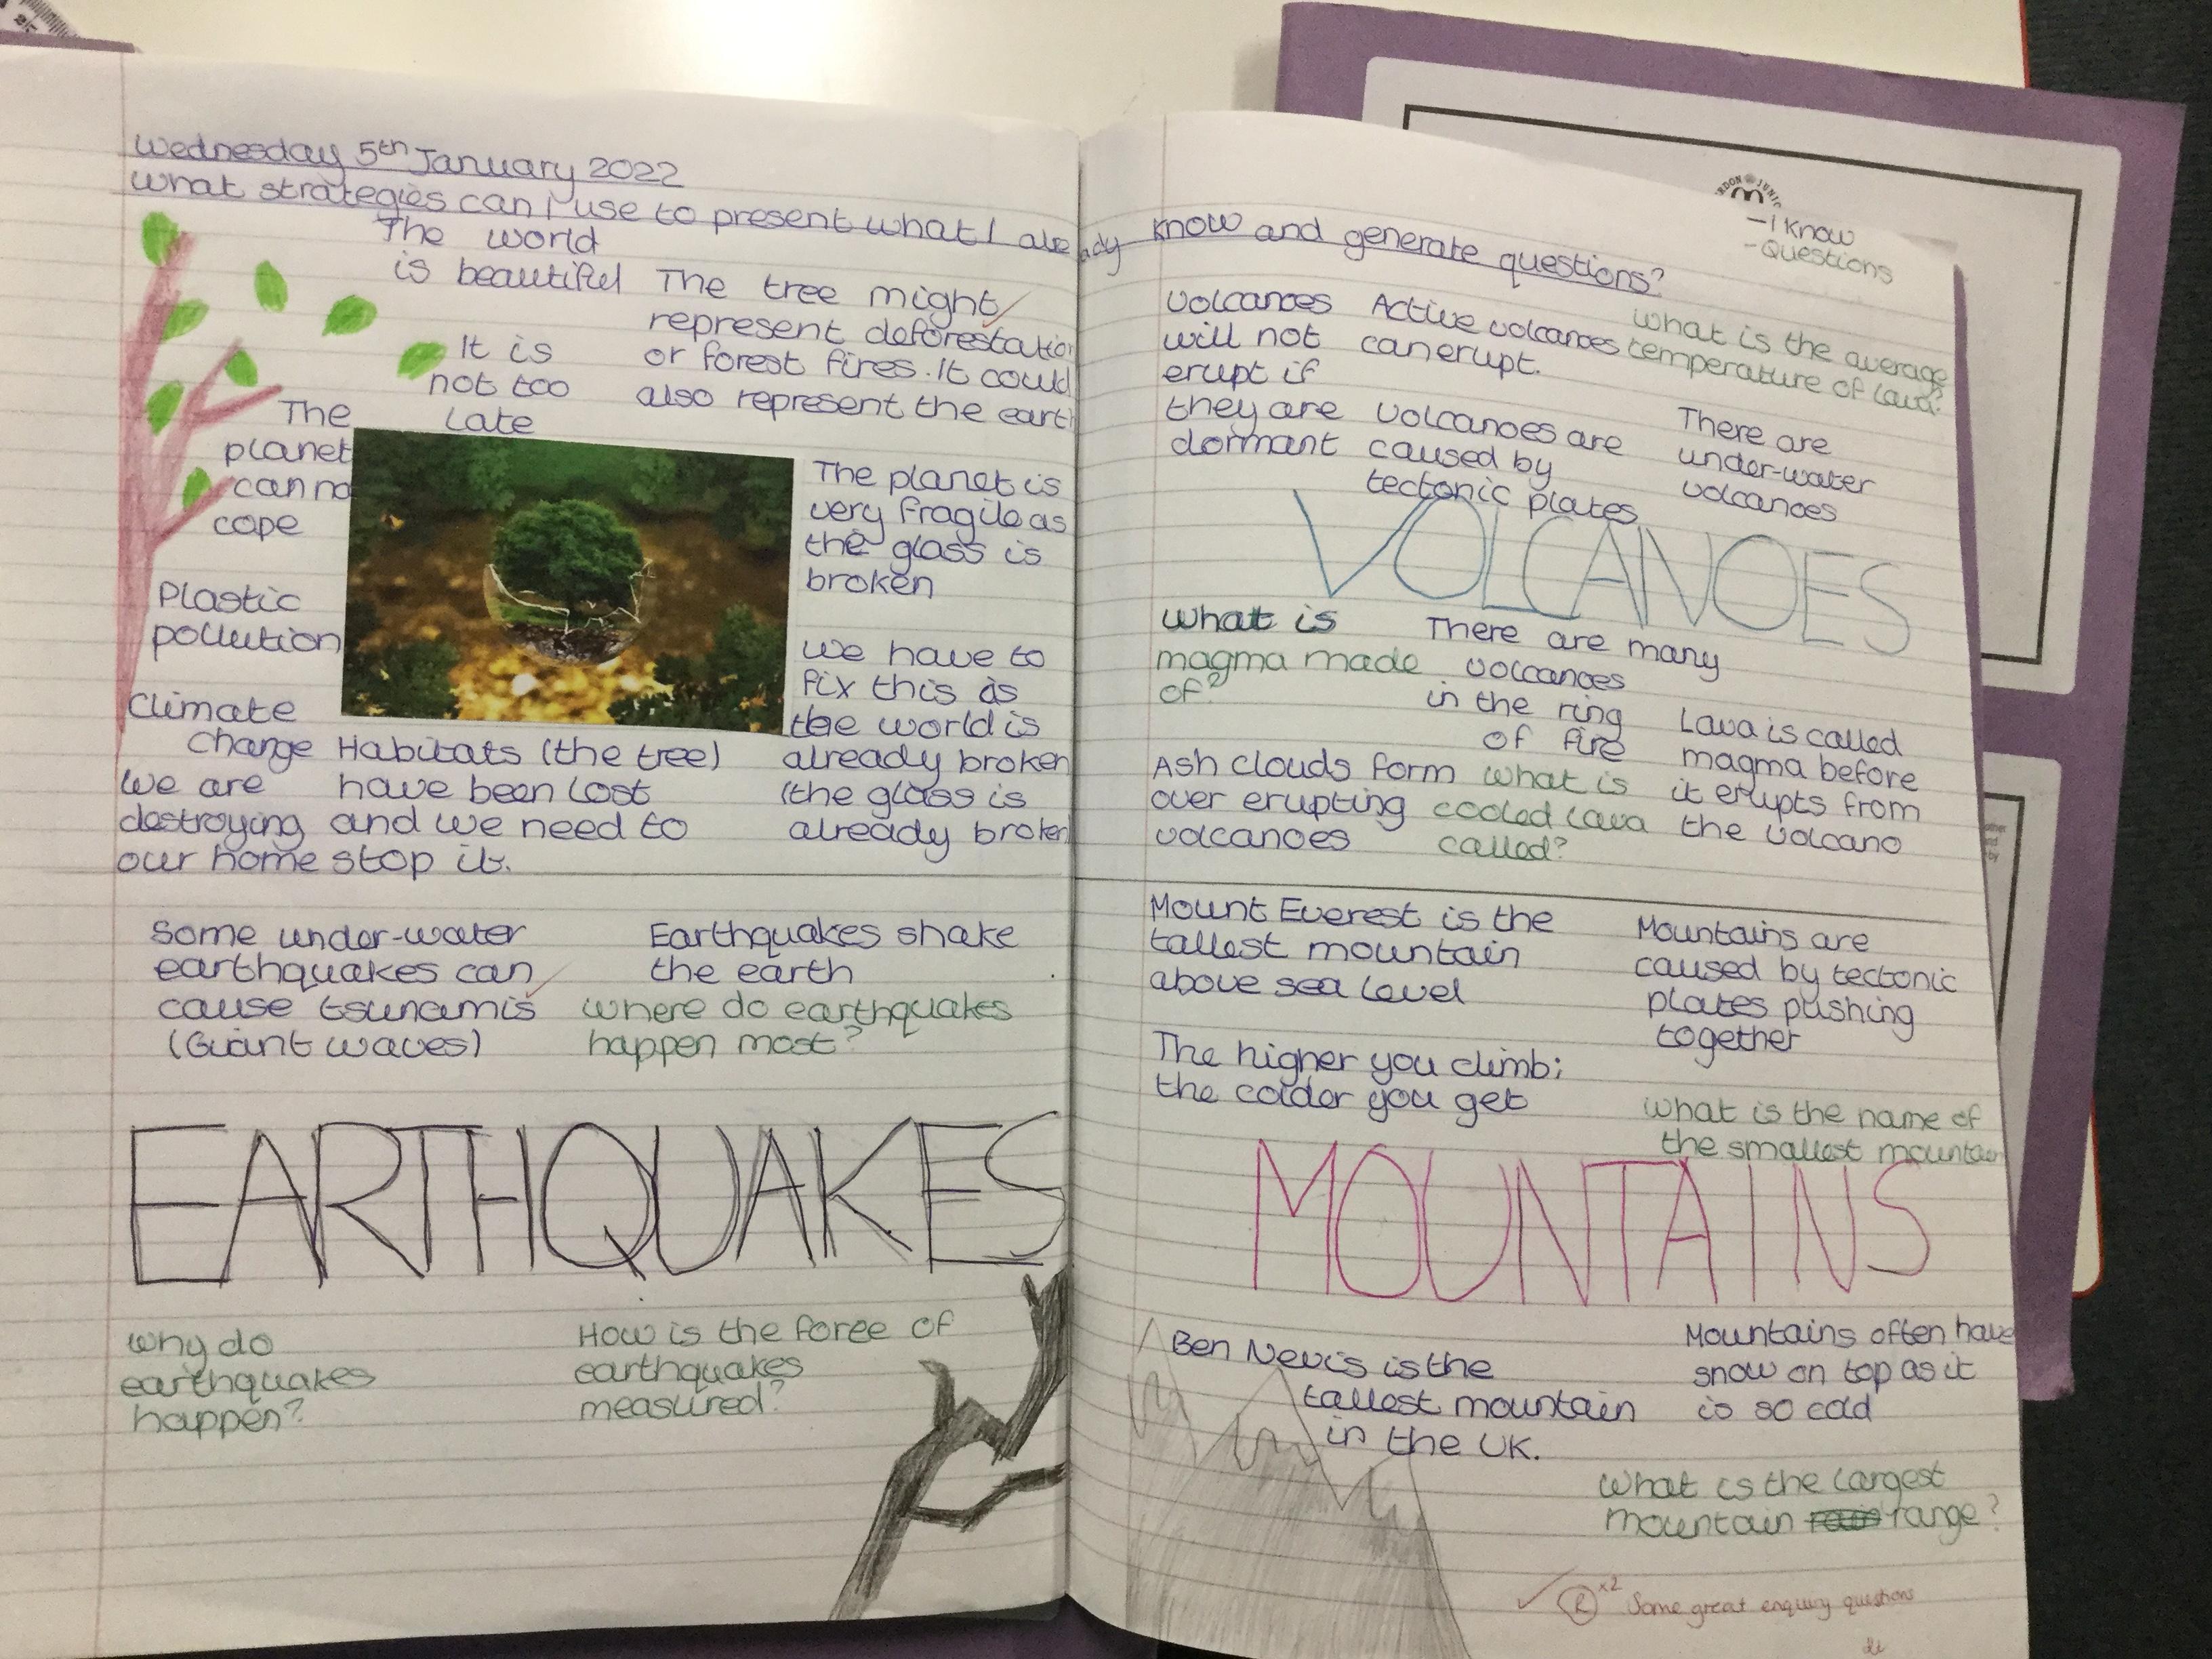 Wednesday 5th January 2022
What strategies can I use to present what I already know and generate questions?
- I Know
- Questions
The world
is beautiful
It is
not too
late
The tree might
represent deforestation
or forest fires. It could
also represent the earth
The
planet
can no
cope
Plastic
pollution
Climate
change
We are
destroying
our home
Habitats (the tree)
have been lost
and we need to
stop it.
The planet is
very fragile as
the glass is
broken
We have to
fix this as
the world is
already broken
(the glass is
already broken
Some under-water
earthquakes can
cause tsunamis
(Giant waves)
Earthquakes shake
the earth
Where do earthquakes
happen most?
EARTHQUAKES
Why do
earthquakes
happen?
How is the force of
earthquakes
measured?
Volcanoes
will not
erupt if
they are
dormant
Active volcanoes
can erupt.
What is the average
temperature of lava?
Volcanoes are
caused by
tectonic plates
There are
under-water
volcanoes
VOLCANOES
What is
magma made
of?
There are many
volcanoes
in the ring
of fire
Lava is called
magma before
it erupts from
the volcano
Ash clouds form
over erupting
volcanoes
What is
cooled lava
called?
Mount Everest is the
tallest mountain
above sea level
Mountains are
caused by tectonic
plates pushing
together
The higher you climb;
the colder you get
What is the name of
the smallest mountain
MOUNTAINS
Ben Nevis is the
tallest mountain
in the UK.
Mountains often have
snow on top as it
is so cold
What is the largest
mountain range?
R x2 Some great enquiry questions